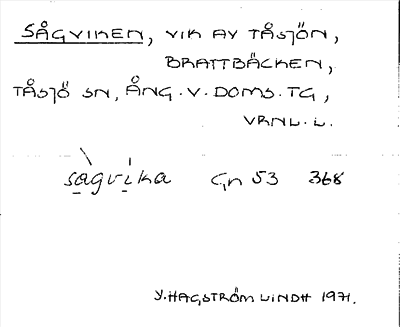 SÅGVIKEN, VIK AV TÅSJÖN,
BRATTBÄCKEN,
TÅSJÖ SN, ÅNG.V.DOMS.TG,
VRNL.L.
sagvika Gn 53 368
Y.HAGSTRÖM LINDH 1971.